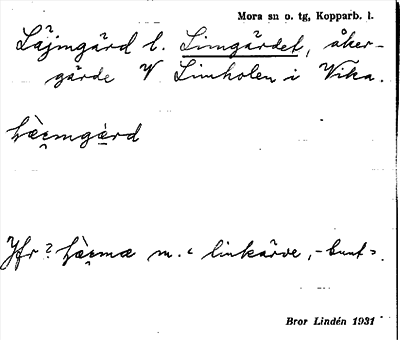 Mora sn o. tg, Kopparb. l.
Lájmgård l. Limgärdet, åker-
gärde V Limholen i Vika.
læ̀i̯mgæ̀rd
Jfr? læ̀i̯mæ m. ‘linkärve, -bunt’.
Bror Lindén 1931